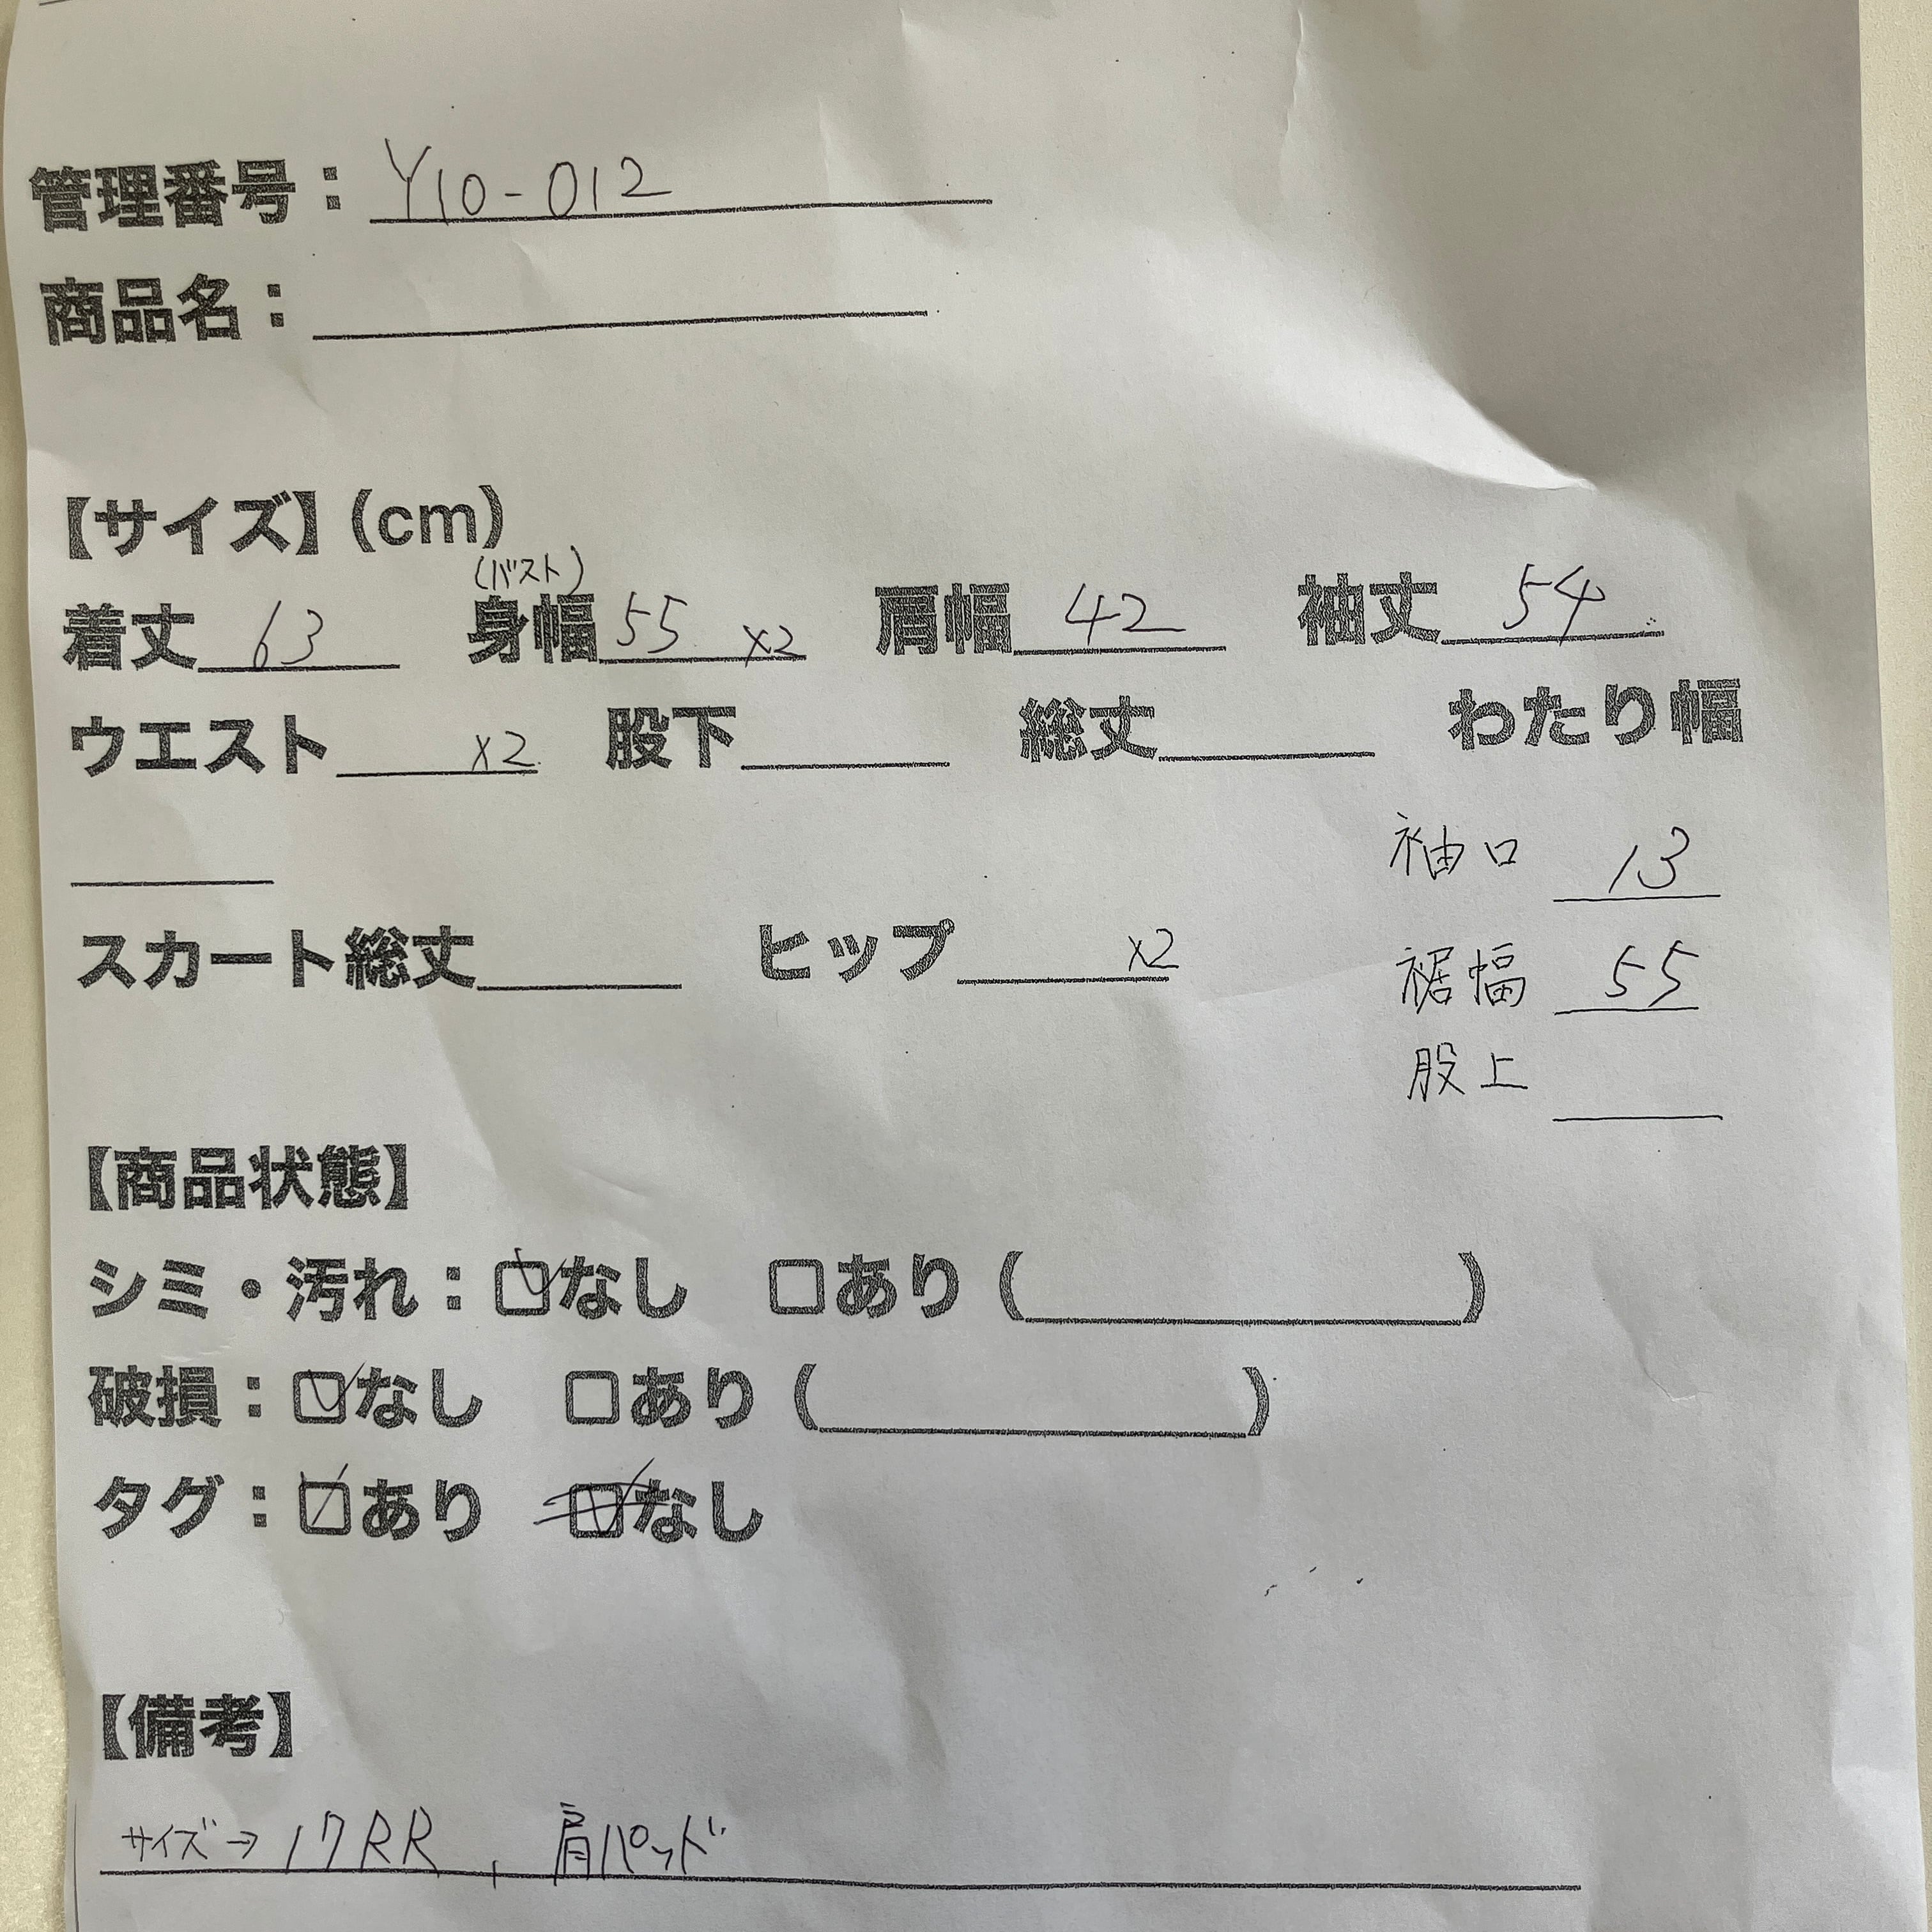 管理番号：Y10-012
商品名：
【サイズ】(cm)
(バスト)
着丈 63 身幅 55 x2 肩幅 42 袖丈 54
ウエスト x2 股下 総丈 わたり幅
袖口 13
スカート総丈 ヒップ x2
裾幅 55
股上
【商品状態】
シミ・汚れ：☑なし □あり ( )
破損：☑なし □あり ( )
タグ：☑あり ☑なし
【備考】
サイズ→17RR, 肩パッド